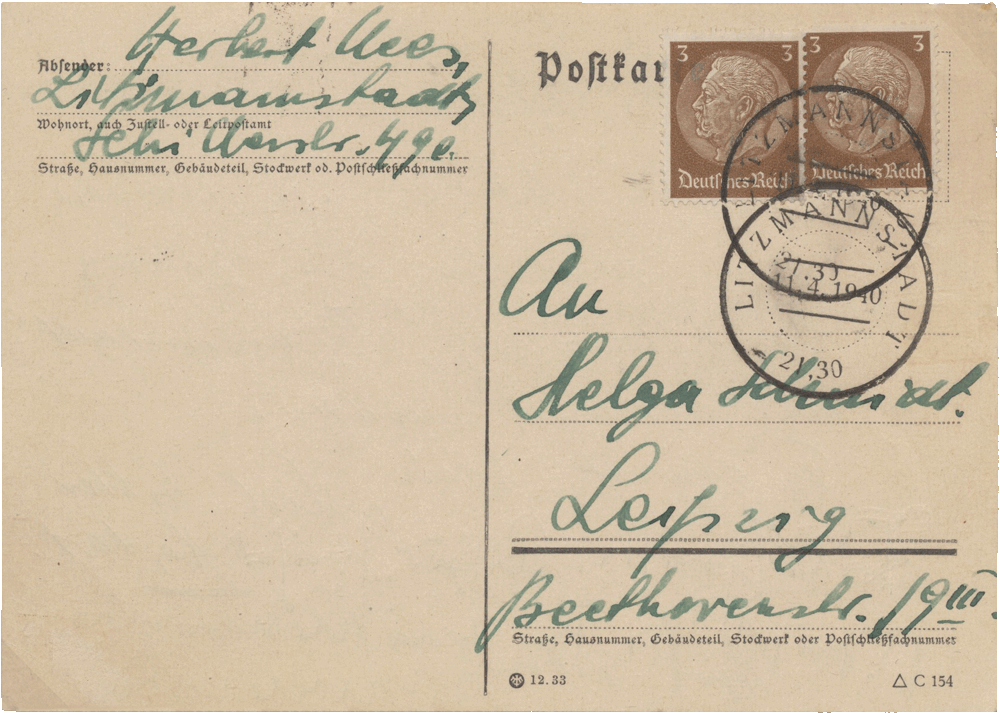 Absender: Herbert Uces,
Litzmannstadt,
Wohnort, auch Zustell- oder Leitpostamt
49c.
Straße, Hausnummer, Gebäudeteil, Stockwerk od. Postschließfachnummer
Postkar
3 3
Deutsches Reich
3 3
Deutsches Reich
LITZMANNSTADT
LITZMANNSTADT
21.30
11.4.1940
21,30
An
Helga Schmidt.
Leipzig
Beethovenstr. 19 III.
Straße, Hausnummer, Gebäudeteil, Stockwerk oder Postschließfachnummer
12.33
△ C 154